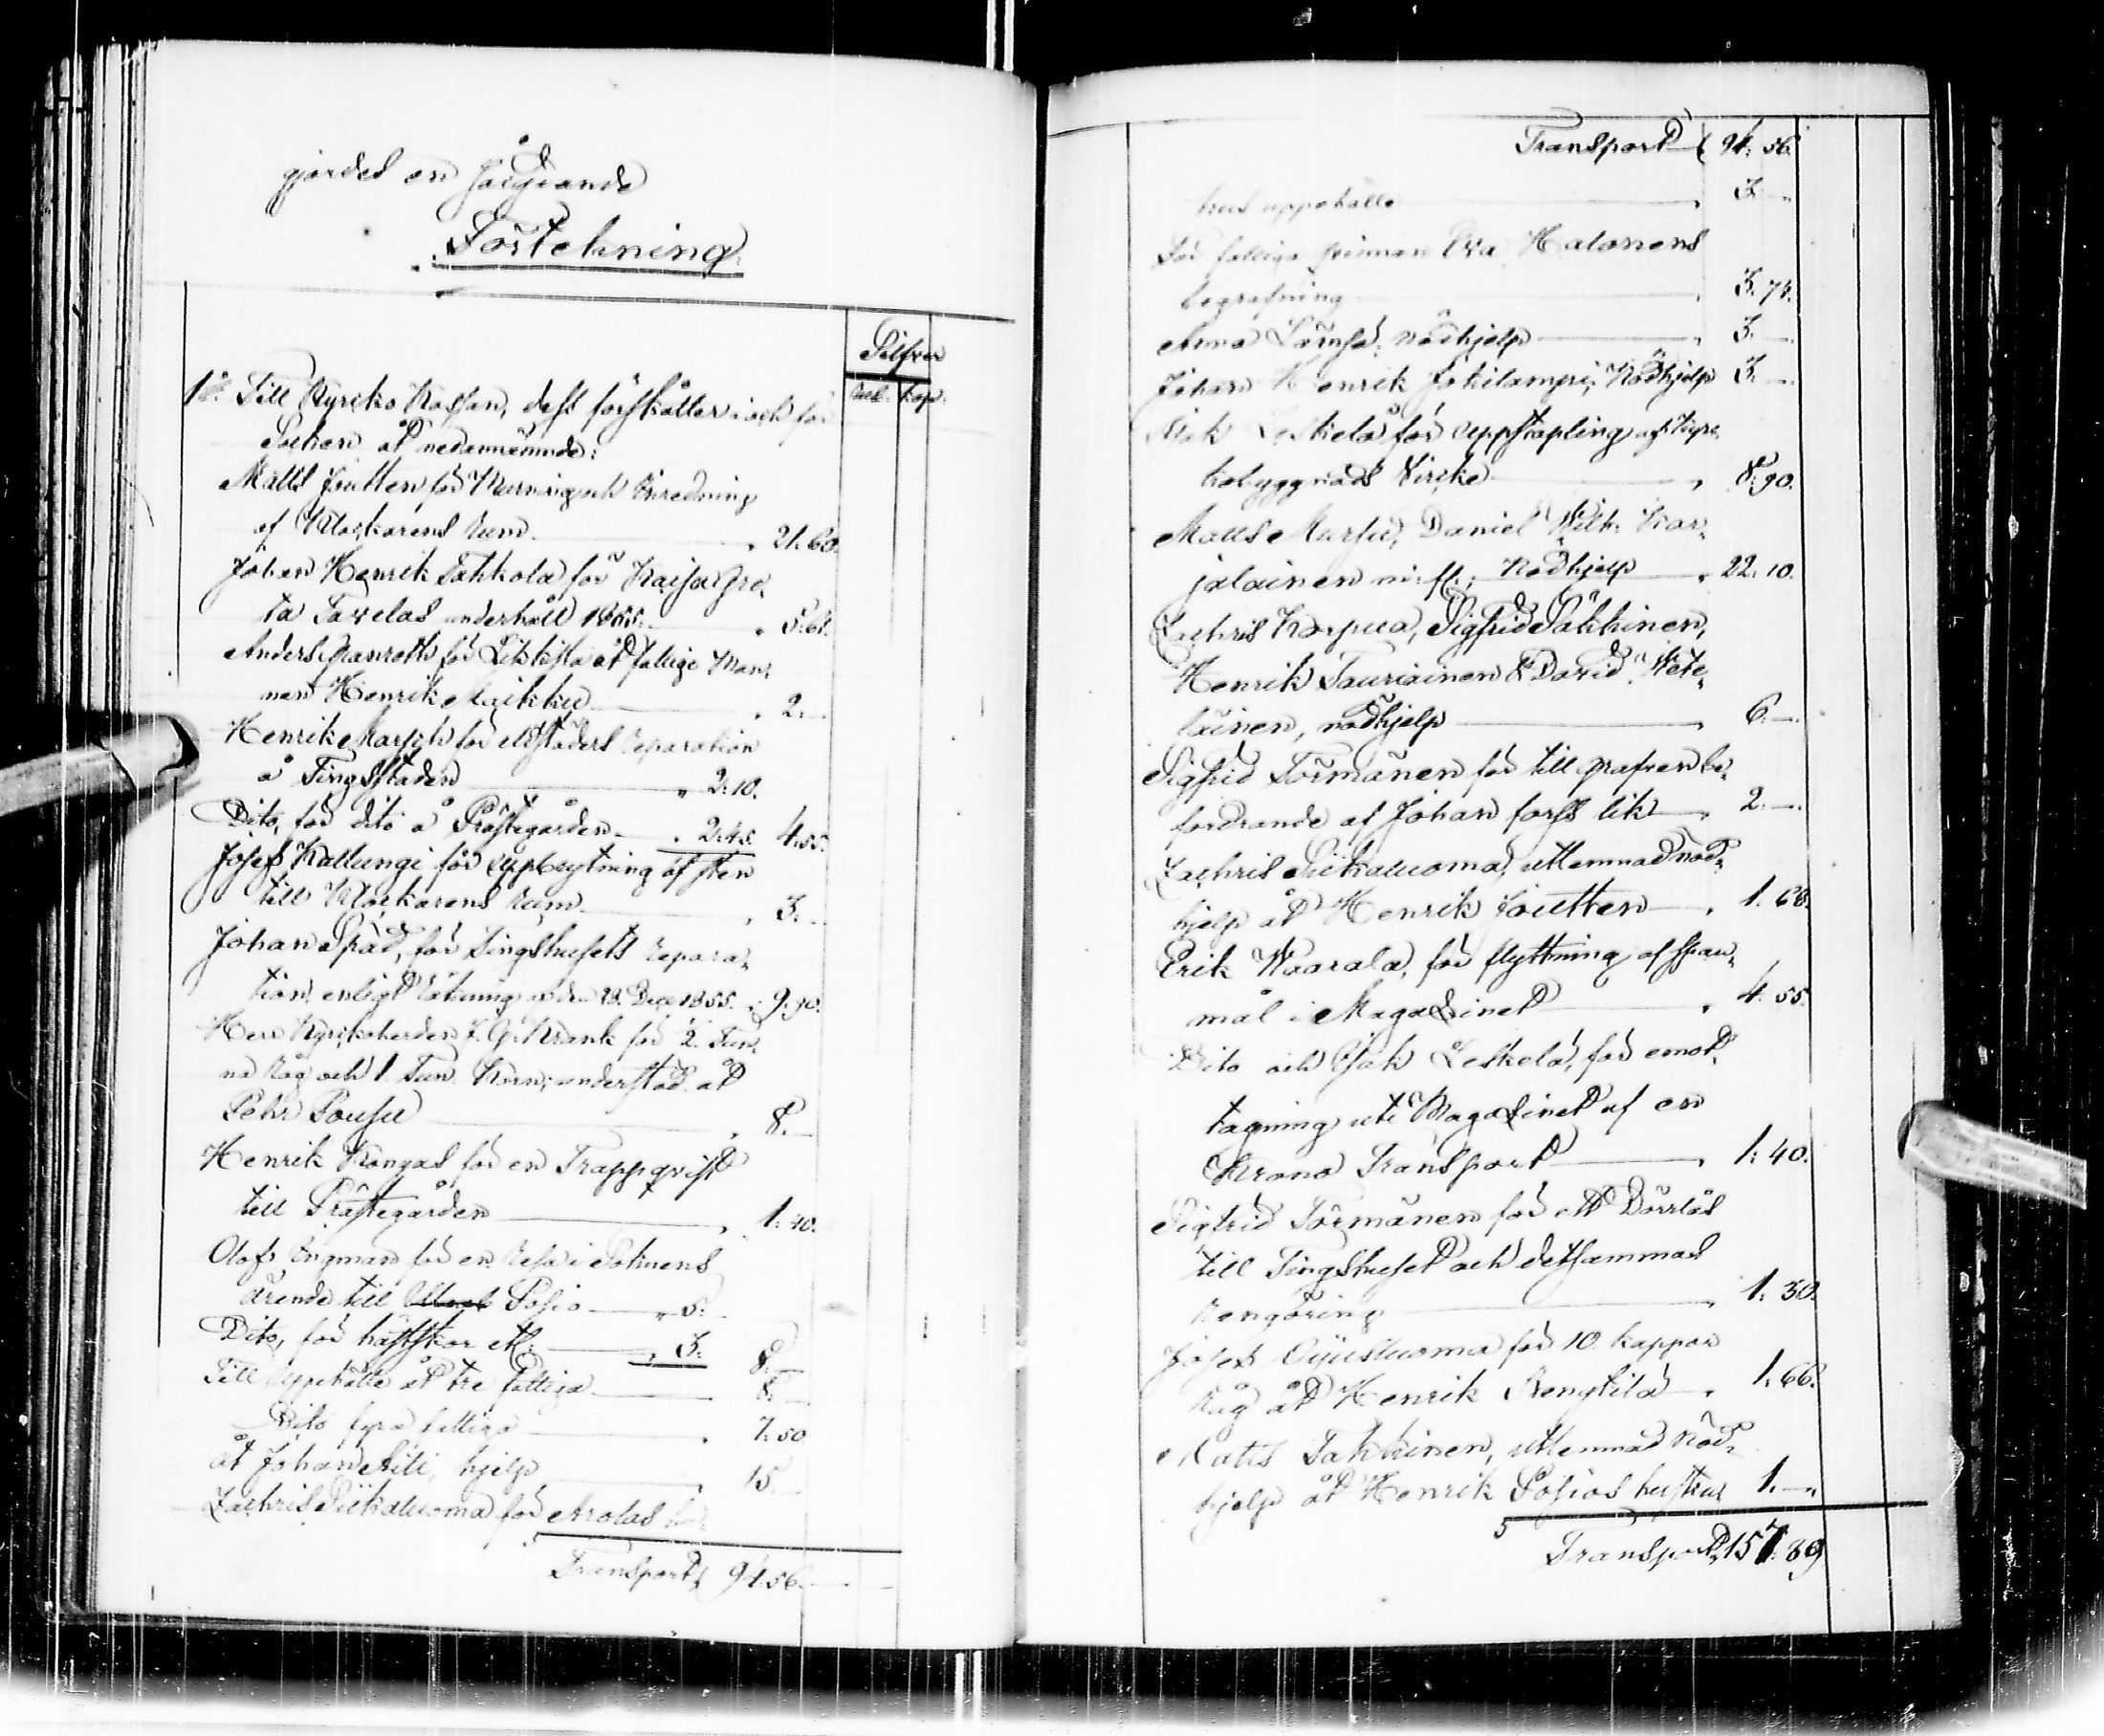 gjordes en följande
Förtekning
Silfver
Rub. kop.
1o. Till Kyrko Kassan, dess förskötter i och för
Socken åt nedannämnde:
Matts Joutten för Murning och Inredning
af Klockarens rum 21. 60.
Johan Henrik Takkola för Kaisa Gre,
ta Tavelas underhåll 1855. 5. 61.
Anders Granroth för Likkista åt fattige Man,
nen Henrik Maikku 2. —
Henrik för eldstäders reparation
å Tingsstaden " 2. 10.
Dito, för dito å Prästegården 2. 45. 4. 55.
Josef Kallungi för uppbrytning af sten
till Klockarens rum 3. —
Johan Späd, för Tingshusets repara,
tion, enligt räkning den 28. Dec 1855. 9. 90.
Herr Kyrkoherden J. G. Krank för 2. Tun,
na Råg och 1. Tun. Korn, understöd åt
Pehr Pousu 8. —
Henrik Kangas för en Trappqvist
till Prästegården 1. 40.
Olof Engman för en resa i Soknens
ärende till Posio " 5. —
Dito, för hästskor etc: 3. 8. —
Till uppehälle åt tre fattiga 8. —
Dito fyra fattiga 7. 50
åt Johan Aili, hjelp 15. —
Zachris Piikaluoma för Arolas
Transport, 94. 56.
Transport 94. 56.
hus uppehälle 3. —
För fattiga qvinnan Eva Halonens
begrafning 3. 74.
Anna Lämsä, nödhjelp 3. —
Johan Henrik Jokilampi, Nödhjelp 3. —
Isak Leskelä för uppstapling af Kyr,
kobyggnads Virke 8. 90.
Matts Mursu, Daniel Wilh. Kar,
jalainen m: fl: Nödhjelp 22. 10.
Zachris Korpua, Sigfrid Säkkinen,
Henrik Tauriainen & David Wete,
läinen, nödhjelp 6. —
Sigfrid Törmänen för till grafven be,
fordrande af Johan forss lik 2. —
Zachris Piikaluoma, utlemnad nöd,
hjelp åt Henrik Joutten 1. 68.
Erik Waarala, för flyttning af span,
mål i Magasinet 4. 55.
Dito och Isak Leskelä, för emot,
tagning uti Magasinet af en
Krono Transport 1. 40.
Sigfrid Törmänen för ett Dörrlås
till Tingshuset och detsammas
rengöring 1. 30.
Josef Oijusluoma för 10. kappar
Råg åt Henrik Kengkilä 1. 66.
Matts Takkinen, utlemnad Nöd,
hjelp åt Henrik Posios hustru 1. —
Transport, 157. 89